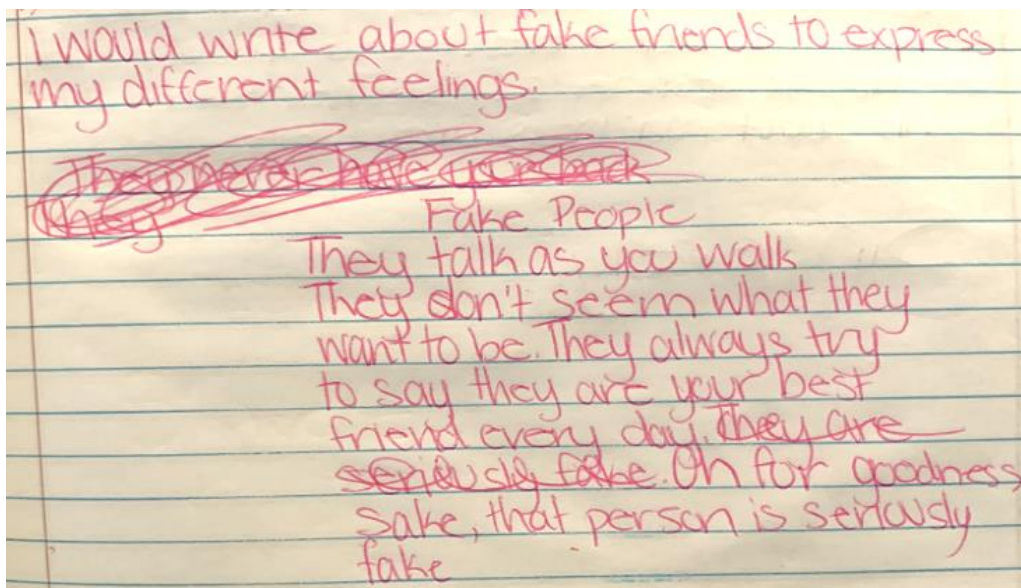 I would write about fake friends to express
my different feelings.
They never have your back
they
Fake People
They talk as you walk
They don't seem what they
want to be. They always try
to say they are your best
friend every day. They are
seriously fake. Oh for goodness
sake, that person is seriously
fake